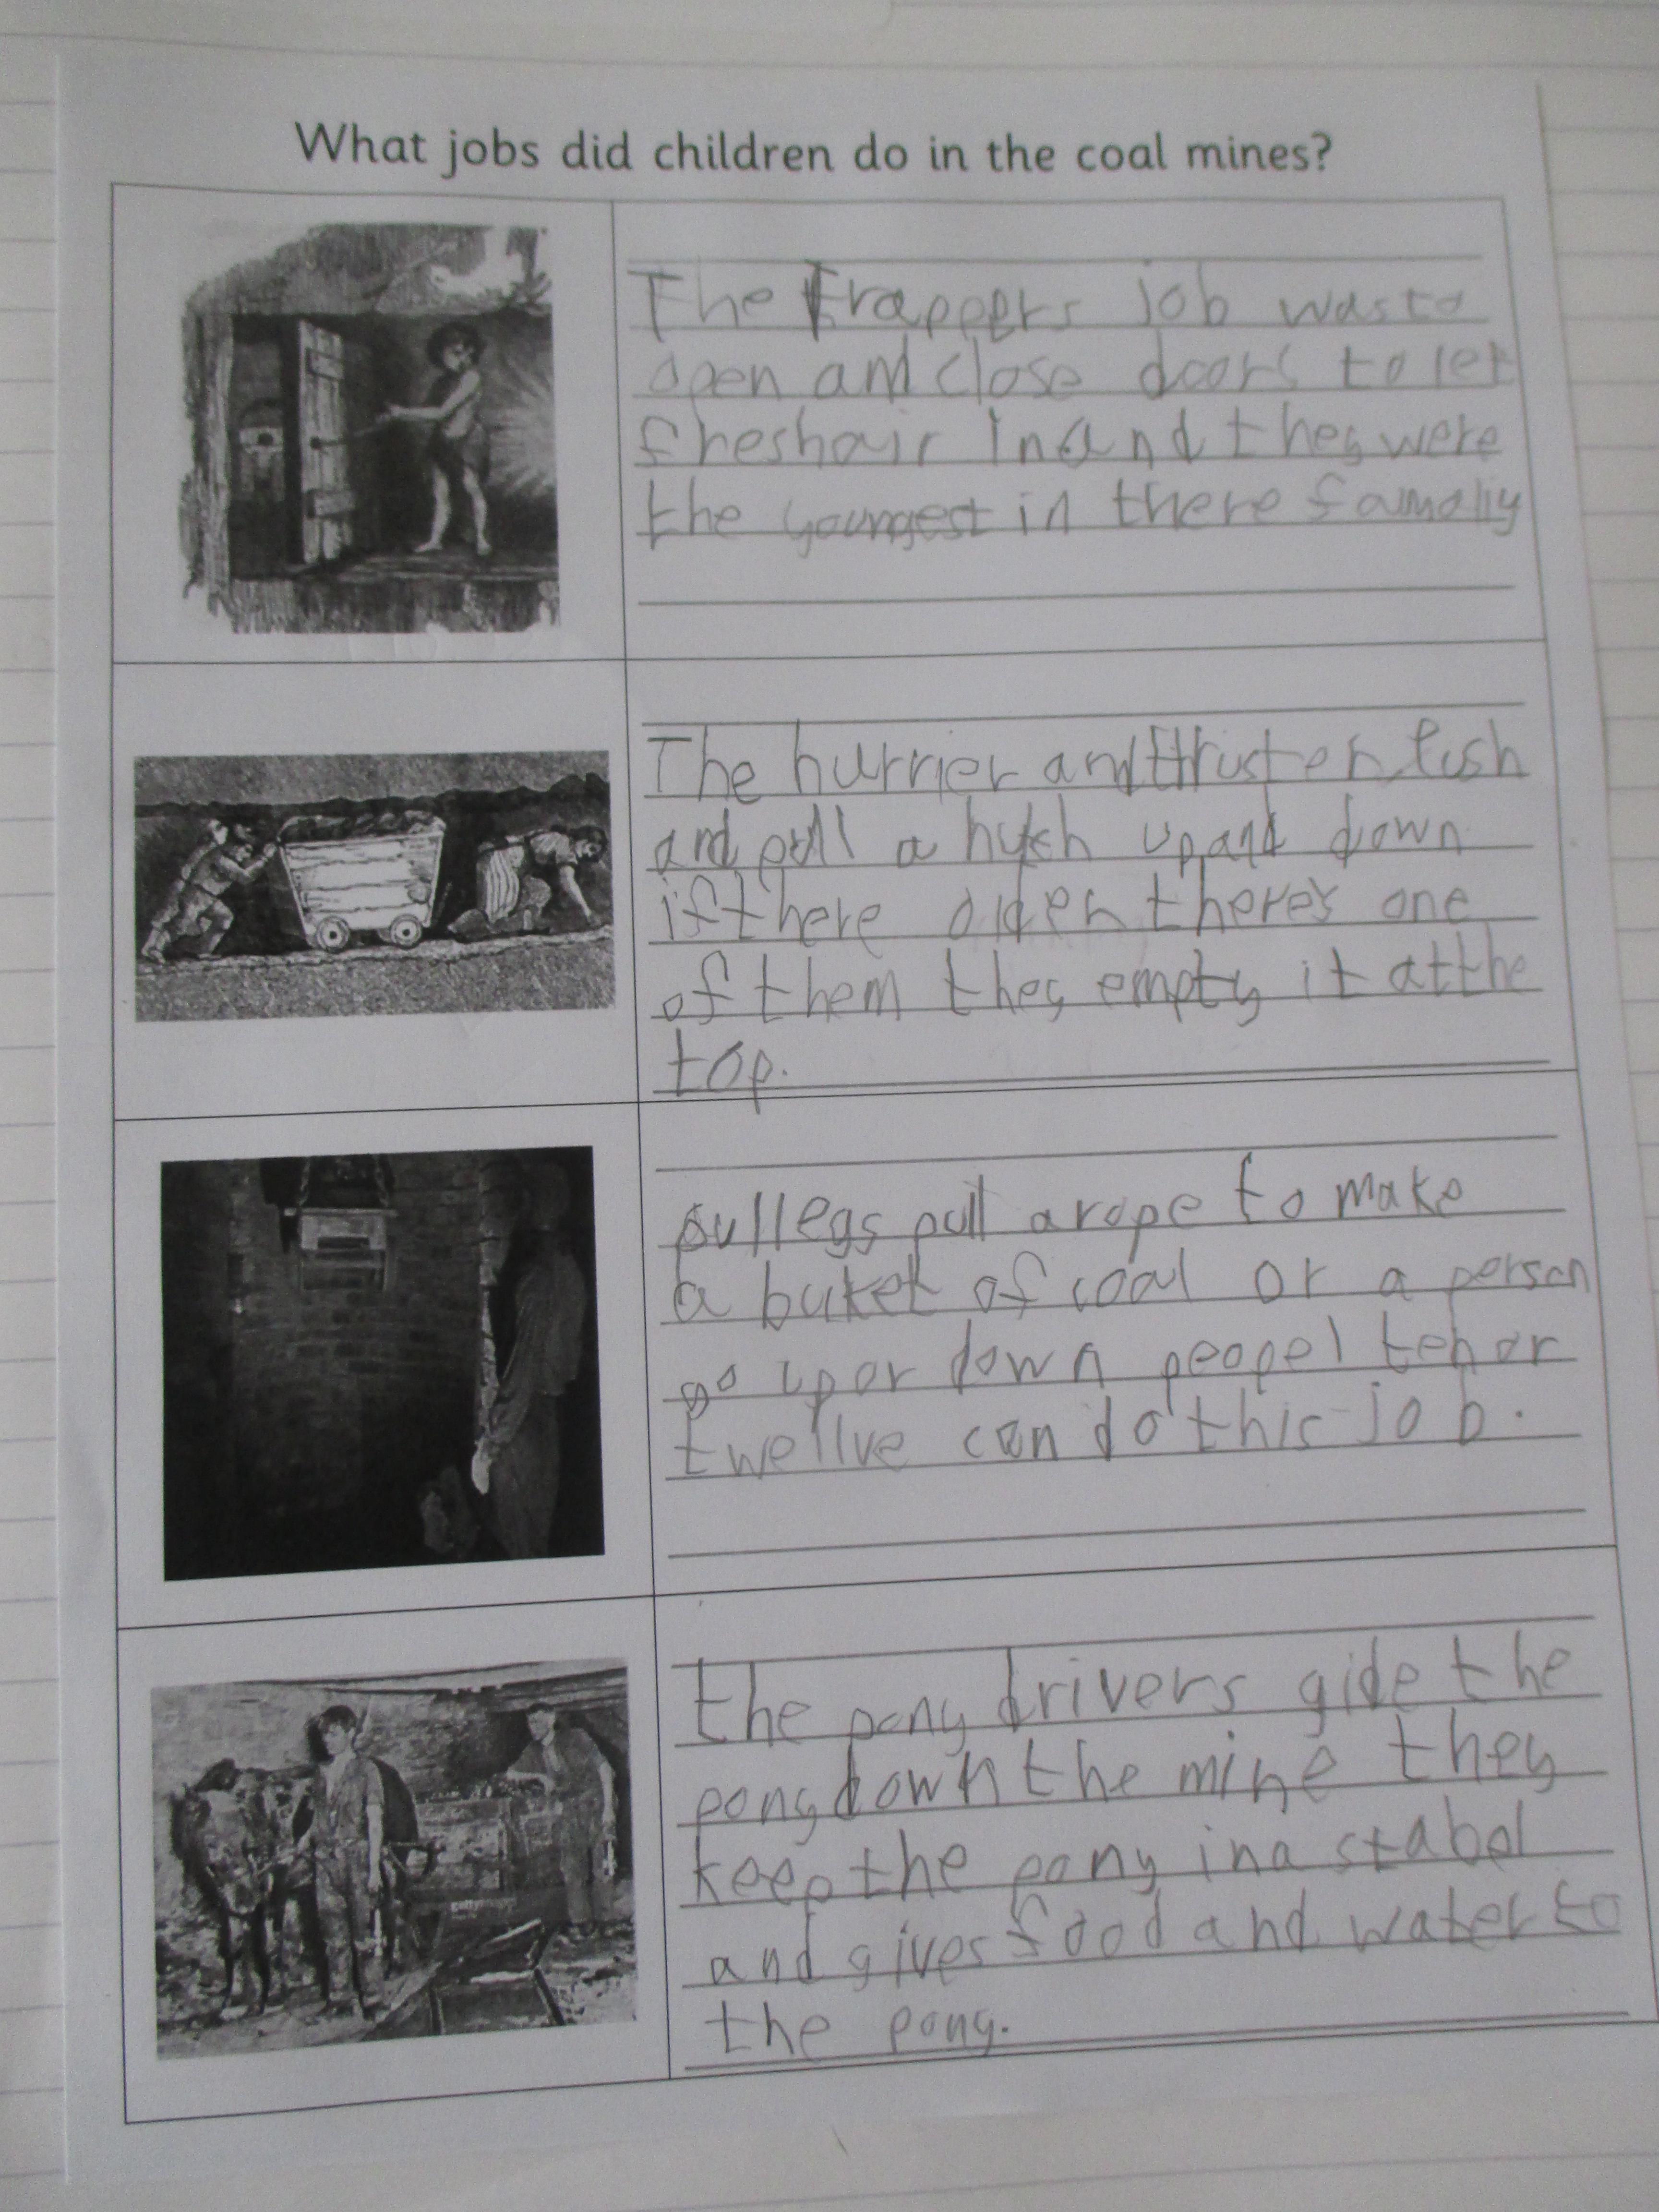 What jobs did children do in the coal mines?
The Trappers job was to
open and close doors to let
freshair in and they were
the youngest in there famaliy
The hurrier and thruster Push
and pull a hutch up and down
if there older there's one
of them they empty it at the
top.
pullegs pull a rope to make
a buket of coal or a person
go up or down peopel ten or
twellve can do this job.
the pony drivers gide the
pony down the mine they
keep the pony in a stabel
and gives food and water to
the pony.